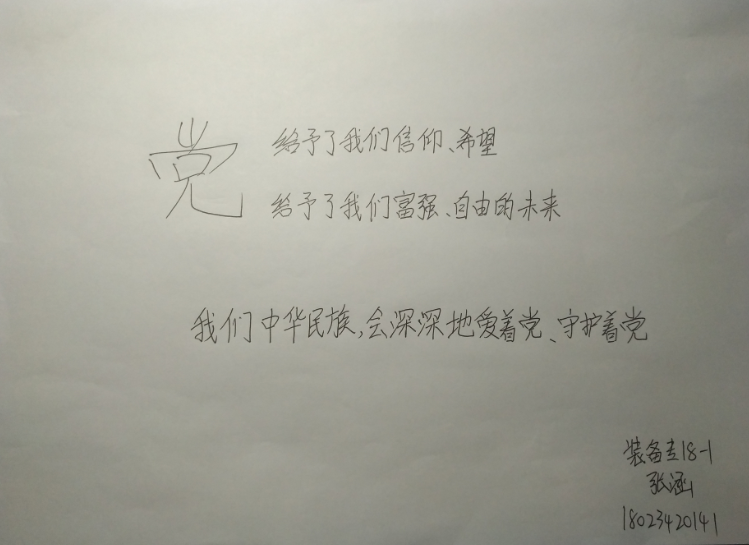 党
给予了我们信仰、希望
给予了我们富强、自由的未来
我们中华民族,会深深地爱着党、守护着党
装备专18-1
张涵
18023420141